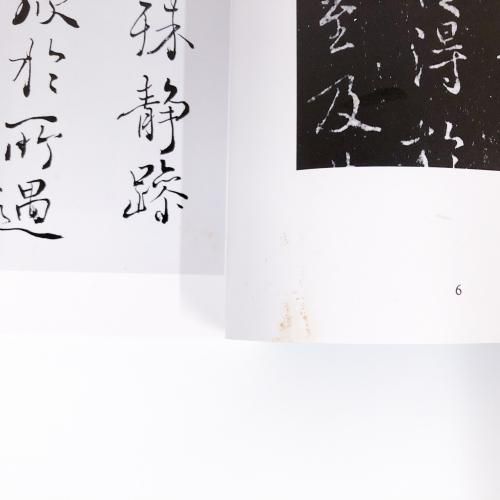 殊静躁
欣於所遇
得於
至及
6